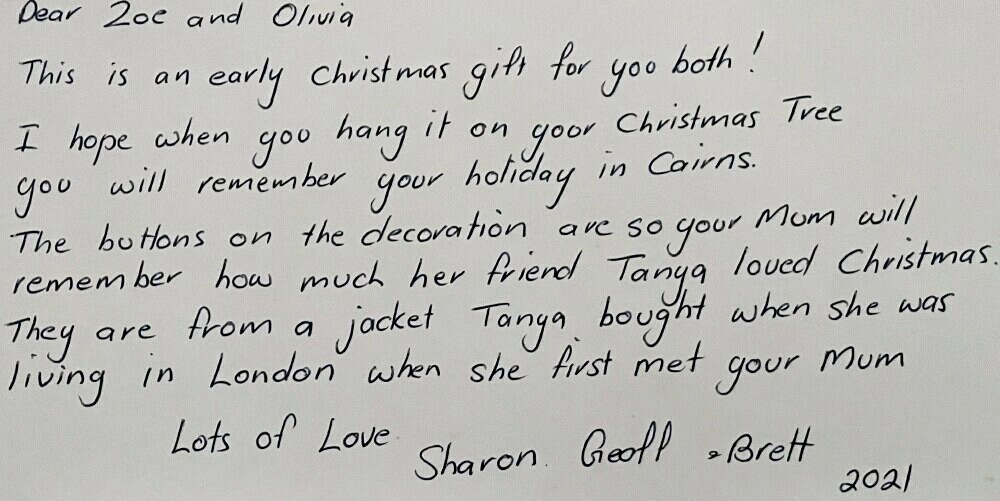 Dear Zoe and Olivia
This is an early Christmas gift for you both!
I hope when you hang it on your Christmas Tree
you will remember your holiday in Cairns.
The buttons on the decoration are so your Mum will
remember how much her friend Tanya loved Christmas.
They are from a jacket Tanya bought when she was
living in London when she first met your Mum
Lots of Love
Sharon. Geoff & Brett
2021